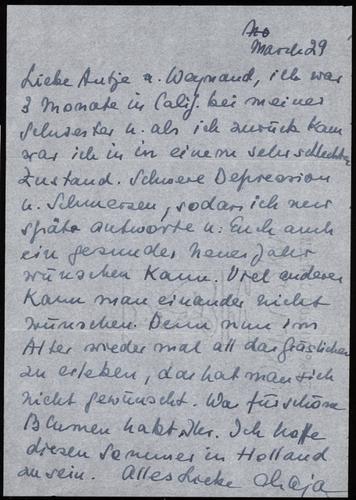 No
March 29
Liebe Antje u. Weynand, ich war
3 Monate in Calif. bei meiner
Schwester u. als ich zurück kam
war ich in in einem sehr schlechten
Zustand. Schwere Depression
u. Schmerzen, sodass ich nur
später antworte u. Euch auch
ein gesundes Neues Jahr
wünschen kann. Viel anderes
kann man einander nicht
wünschen. Denn nun im
Alter wieder mal all das
zu erleben, das hat man sich
nicht gewünscht. Was für schöne
Blumen habt Ihr. Ich hoffe
diesen Sommer in Holland
zu sein. Alles Liebe Chaja